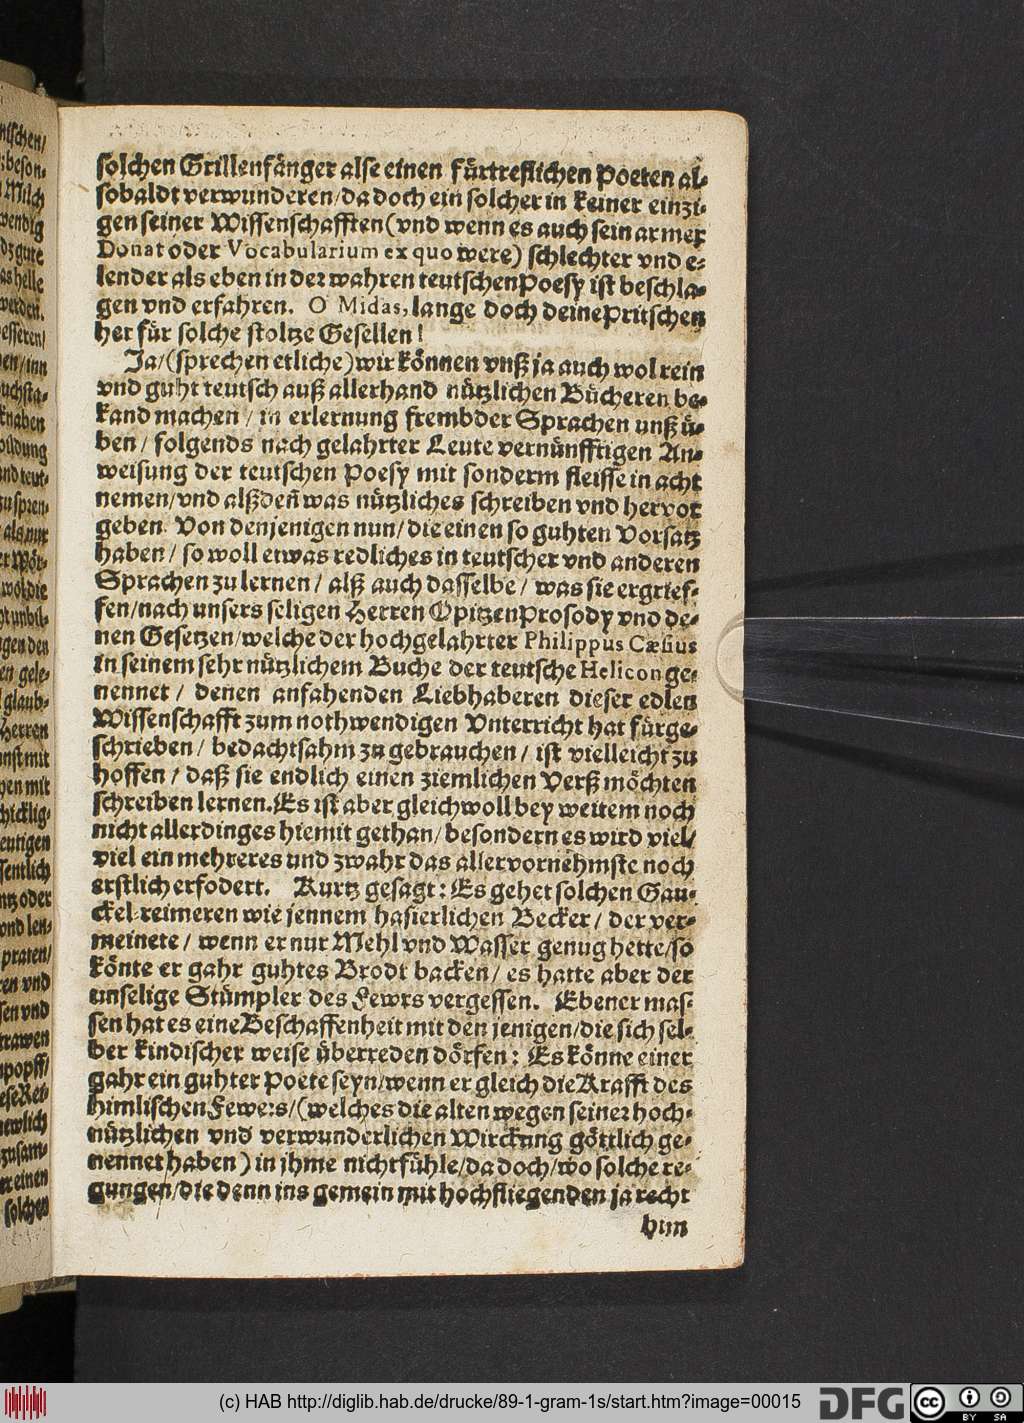 solchen Grillenfänger alse einen fürtreflichen Poeten al-
sobaldt verwunderen/da doch ein solcher in keiner einzi-
gen seiner Wissenschafften (vnd wenn es auch sein armer
Donat oder Vocabularium ex quo were) schlechter vnd e-
lender als eben in der wahren teutschen Poesy ist beschla-
gen vnd erfahren. O Midas, lange doch deine Pritschen
her für solche stoltze Gesellen!
Ja/(sprechen etliche) wir können vnß ja auch wol rein
vnd guht teutsch auß allerhand nützlichen Bücheren be-
kand machen / in erlernung frembder Sprachen vnß ü-
ben / folgends nach gelahrter Leute vernünfftigen An-
weisung der teutschen Poesy mit sonderm fleisse in acht
nemen/vnd alßdeñ was nützliches schreiben vnd hervor
geben. Von denjenigen nun/die einen so guhten Vorsatz
haben / so woll etwas redliches in teutscher vnd anderen
Sprachen zu lernen / alß auch dasselbe / was sie ergrief-
fen/nach unsers seligen Herren Opitzen Prosody vnd de-
nen Gesetzen/welche der hochgelahrter Philippus Cæsius
in seinem sehr nützlichem Buche der teutsche Helicon ge-
nennet / denen anfahenden Liebhaberen dieser edlen
Wissenschafft zum nothwendigen Vnterricht hat fürge-
schrieben / bedachtsahm zu gebrauchen / ist vielleicht zu
hoffen / daß sie endlich einen ziemlichen Verß möchten
schreiben lernen. Es ist aber gleichwoll bey weitem noch
nicht allerdinges hiemit gethan/ besondern es wird viel/
viel ein mehreres und zwahr das allervornehmste noch
erstlich erfodert. Kurtz gesagt: Es gehet solchen Gau-
ckel-reimeren wie jennem hasierlichen Becker / der ver-
meinete / wenn er nur Mehl vnd Wasser genug hette/so
könte er gahr guhtes Brodt backen/ es hatte aber der
unselige Stümpler des Fewrs vergessen. Ebener mas-
sen hat es eine Beschaffenheit mit den jenigen/die sich sel-
ber kindischer weise überreden dörfen: Es könne einer
gahr ein guhter Poete seyn/wenn er gleich die Krafft des
himlischen Fewers/(welches die alten wegen seiner hoch-
nützlichen vnd verwunderlichen Wirckung göttlich ge-
nennet haben) in jhme nicht fühle/da doch/wo solche re-
gungen/die denn ins gemein mit hochfliegenden ja recht
him
(c) HAB http://diglib.hab.de/drucke/89-1-gram-1s/start.htm?image=00015
DFG
cc
BY SA